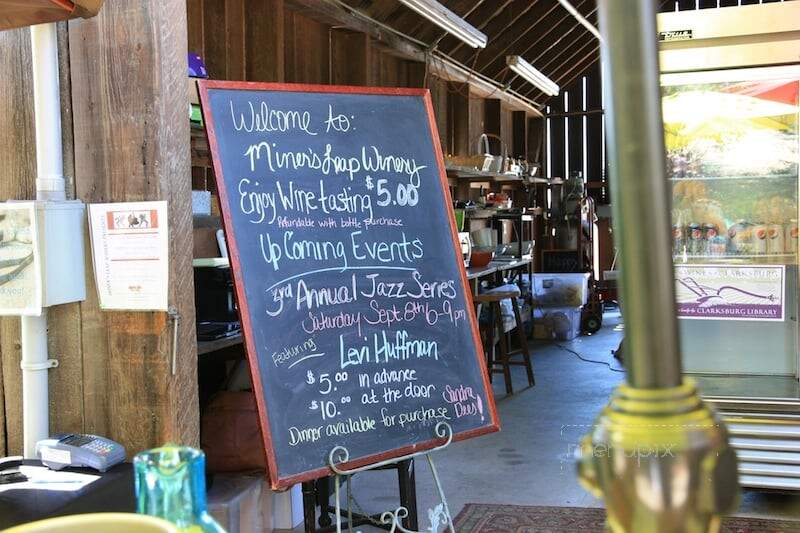 Welcome to:
Miner's Leap Winery
Enjoy Wine tasting $5.00
Refundable with bottle purchase
Up Coming Events
3rd Annual Jazz Series
Saturday Sept 6th 6-9pm
Featuring Levi Huffman
$5.00 in advance
$10.00 at the door
Sandra Dees!
Dinner available for purchase
CLARKSBURG LIBRARY
True
menupix